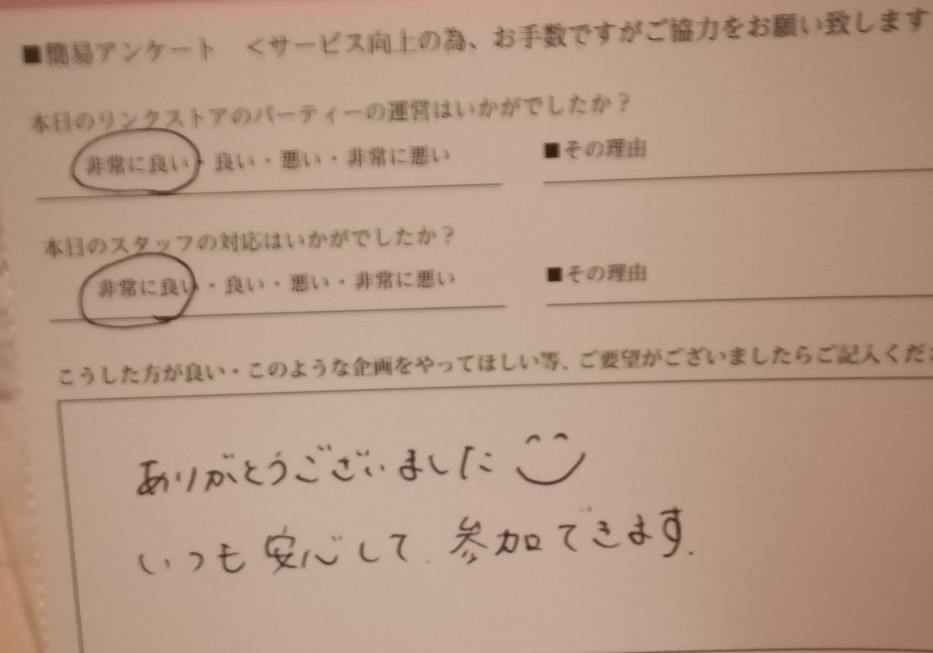 ■簡易アンケート <サービス向上の為、お手数ですがご協力をお願い致します
本日のリンクストアのパーティーの運営はいかがでしたか?
非常に良い・良い・悪い・非常に悪い ■その理由
本日のスタッフの対応はいかがでしたか?
非常に良い・良い・悪い・非常に悪い ■その理由
こうした方が良い・このような企画をやってほしい等、ご要望がございましたらご記入くだ
ありがとうございました
いつも安心して参加できます.